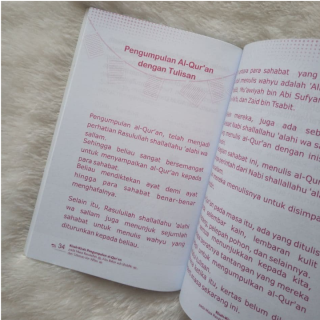 Pengumpulan Al-Qur'an
dengan Tulisan
Pengumpulan al-Qur'an, telah menjadi
perhatian Rasulullah shallallahu 'alaihi wa
sallam.
Sehingga beliau sangat bersemangat
untuk menyampaikan al-Qur'an kepada
para sahabat.
Beliau mendiktekan ayat demi ayat
hingga para sahabat benar-benar
menghafalnya.
Selain itu, Rasulullah shallallahu 'alaihi
wa sallam juga menunjuk sejumlah
sahabat untuk menulis wahyu yang
diturunkan kepada beliau.
34
para sahabat yang
menulis wahyu adalah
Mu'awiyah bin Abi Sufyan
dan Zaid bin Tsabit.
mereka, juga ada
shallallahu 'alaihi wa
sahabat ini, menulis al-Qur'an
dengan
dari Nabi shallallahu 'alaihi
menulisnya untuk disimpan
pada masa itu, ada yang ditulis
pelepah pohon, dan selainnya.
kain, lembaran kulit
tantangan yang mereka
untuk mengumpulkan al-Qur'an
kepada kita,
itu, kertas belum